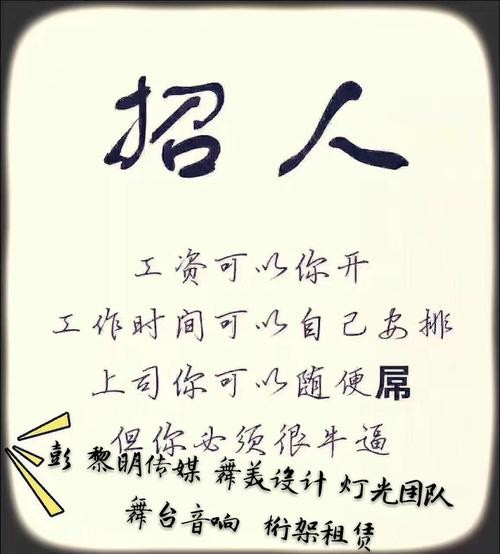 招人
工资可以你开
工作时间可以自己安排
上司你可以随便屌
但你必须很牛逼
彭 黎明传媒 舞美设计 灯光团队
舞台音响 桁架租赁